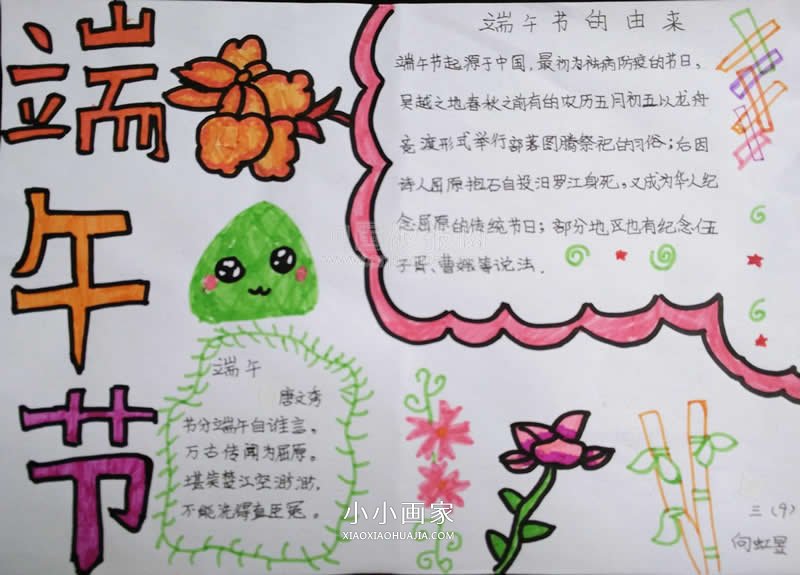 端午节
端午节的由来
端午节起源于中国,最初为祛病防疫的节日,
吴越之地春秋之前有的农历五月初五以龙舟
竞渡形式举行部落图腾祭祀的习俗;后因
诗人屈原抱石自投汨罗江身死,又成为华人纪
念屈原的传统节日;部分地区也有纪念伍
子胥、曹娥等说法.
端午
唐文秀
节分端午自谁言。
万古传闻为屈原。
堪笑楚江空渺渺,
不能洗得直臣冤。
小小画家
XIAOXIAOHUAJIA.COM
三(9)
向虹昱